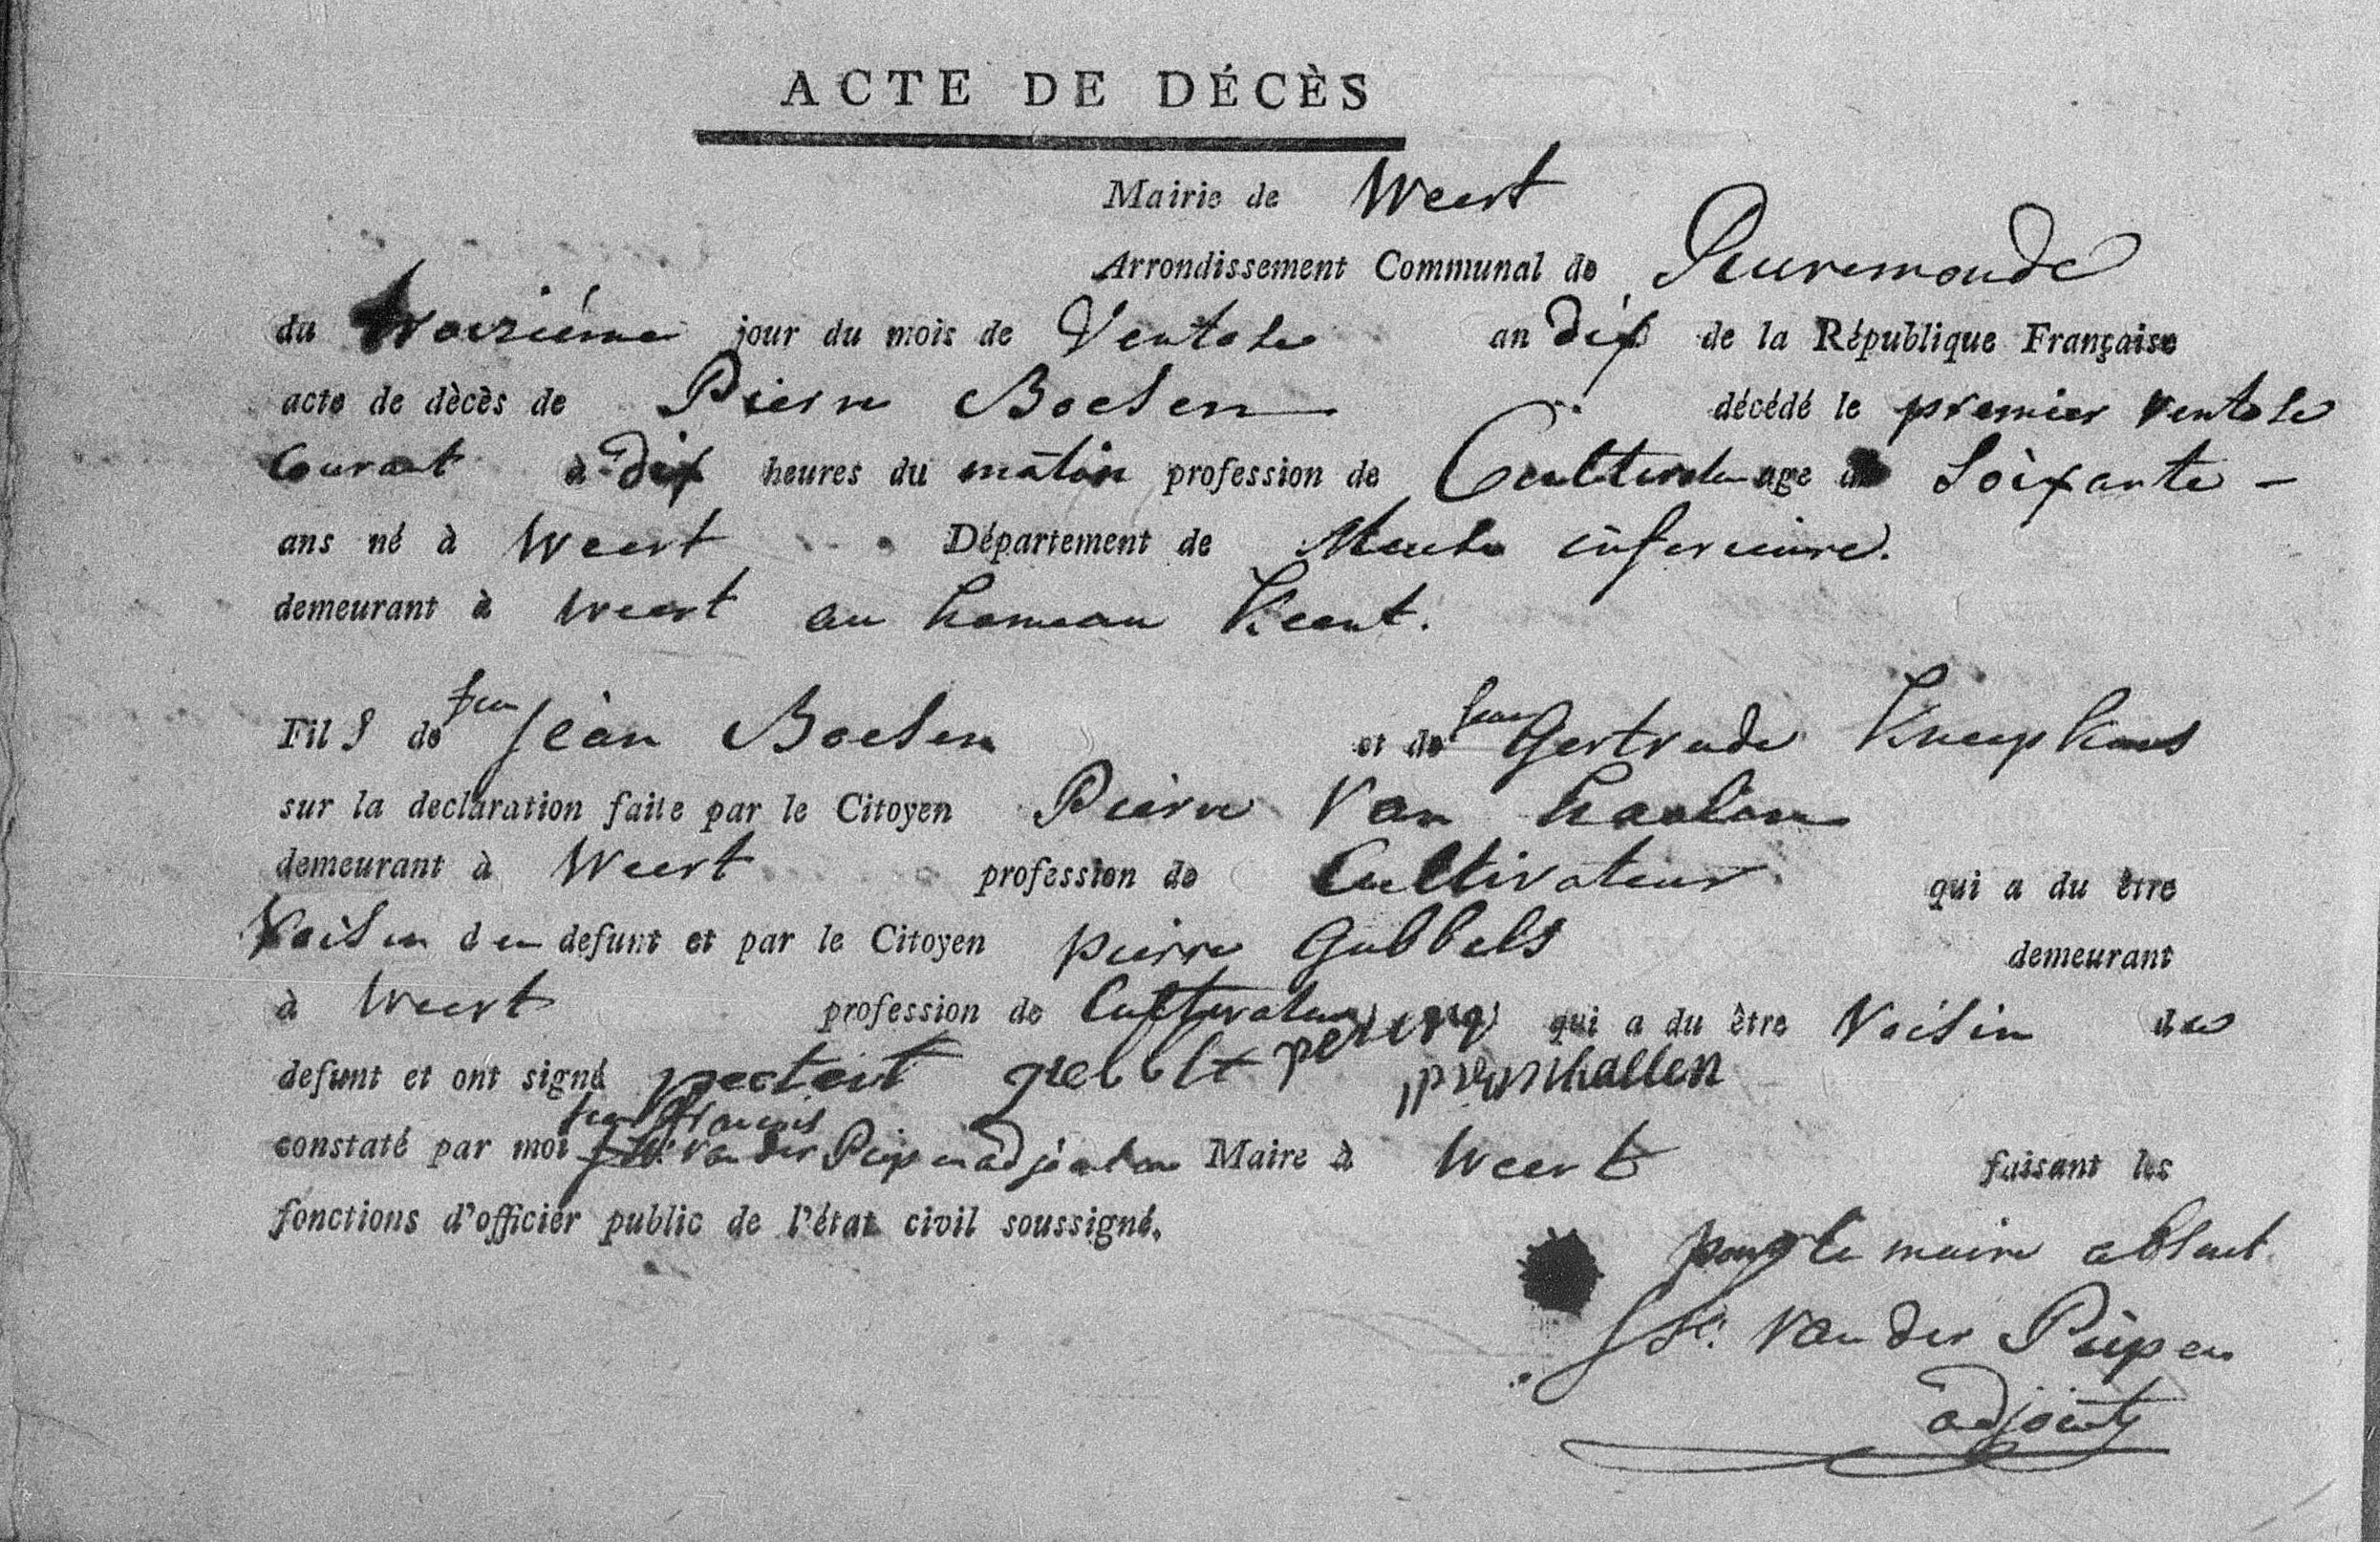 ACTE DE DÉCÈS
Mairie de Weert
Arrondissement Communal de Ruremonde
du troisiéme jour du mois de Ventose an dix de la République Française
acte de dècès de Pierre Boesen décédé le premier ventose
Courant à dix heures du matin profession de Cultivateur age de Soixante -
ans né à Weert Département de Meuse inferieure.
demeurant à Weert au hameau Keent.
Fils de feu Jean Boesen et de feue Gertrude Kneepkens
sur la declaration faite par le Citoyen Pierre Van
demeurant à Weert profession de Cultivateur qui a du être
Voisin du defunt et par le Citoyen pierre Gubbels demeurant
à Weert profession de Cultivateur qui a du être Voisin du
defunt et ont signé
constaté par moi jean françois Van der Püpen adjoint au Maire à Weert faisant les
fonctions d'officier public de l'état civil soussigné.
pour le maire absent
Van der Püpen
adjoint